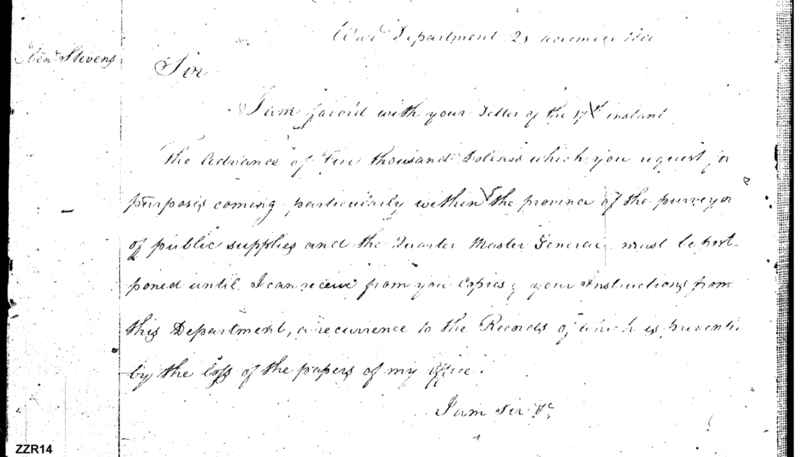 War Department 21 November 1800
Genl Stevens
Sir
I am favor'd with your Letter of the 17th instant
The Advance of Five thousand Dollars which you request for
purposes coming particularly within the province of the purveyor
of public supplies and the Quarter Master General must be post-
poned until I can receive from you Copies of your Instructions from
this Department, a recurrence to the Records of which is prevented
by the loss of the papers of my Office.
I am Sir &c
ZZR14